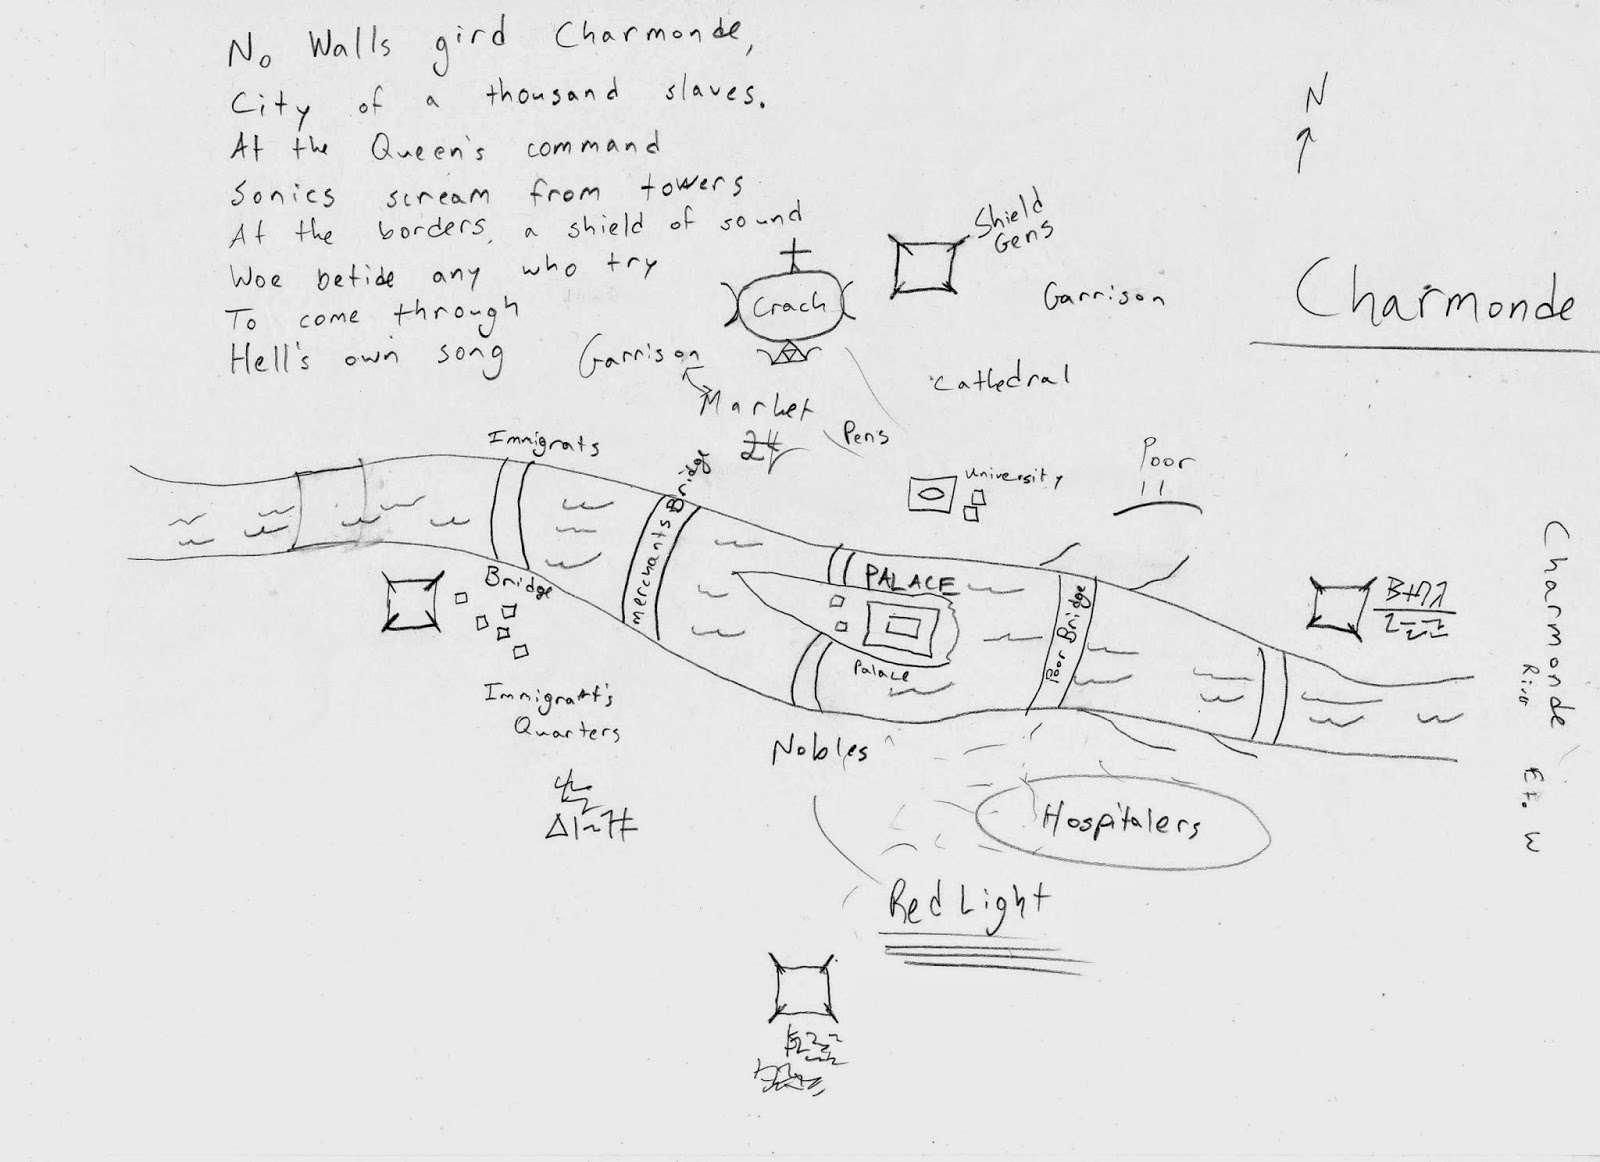 No Walls gird Charmonde,
City of a thousand slaves.
At the Queen's command
Sonics scream from towers
At the borders, a shield of sound
Woe betide any who try
To come through
Hell's own song
N
Shield
Gens
Garrison
Charmonde
Crach
Garrison
Cathedral
Market
Pens
Immigrats
Bridge
University
Poor
Merchants
PALACE
Poor Bridge
Bridge
Palace
Charmonde
River
Immigratt's
Quarters
Nobles
Hospitalers
Red Light